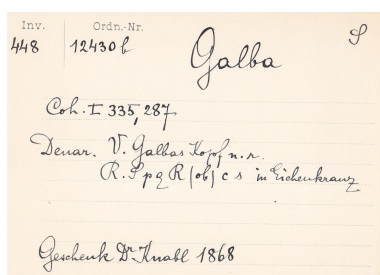 Inv. Ordn.-Nr.
448 12430b
Galba
S
Coh. I 335, 287
Denar. V. Galbas Kopf n. r.
R. S p q R (ob) c s in Eichenkranz
Geschenk Dr Knabl 1868